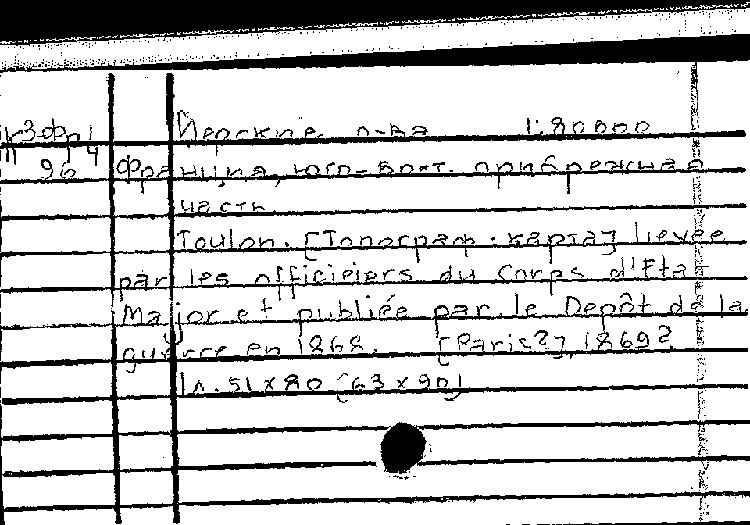 К3-Фр/4 Йерские о-ва 1:80000
III 96 Франция, юго-вост. прибрежная
часть
Toulon. [Топограф. карта] lievée
par les officiers du Corps d'Eta
Major et publiée par le Depôt de la
guerre en 1868. [Paris?], 1869?
1 л. 51 x 80 (63 x 90)